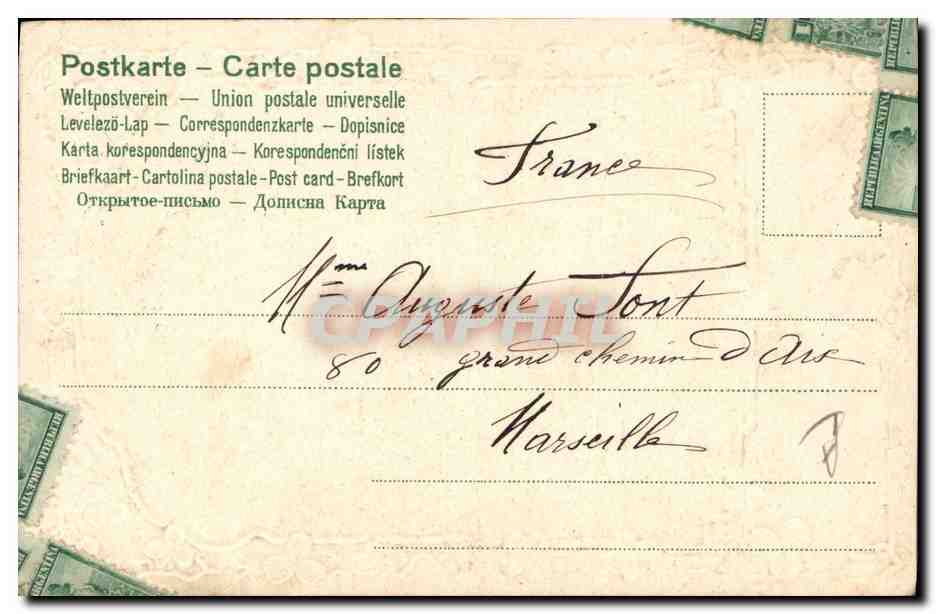 Postkarte – Carte postale
Weltpostverein — Union postale universelle
Levelező-Lap — Correspondenzkarte — Dopisnice
Karta korespondencyjna — Korespondenční lístek
Briefkaart - Cartolina postale - Post card - Brefkort
Открытое-письмо — Дописна Карта
France
Mme Auguste Font
CPAPHIL
80 grand chemin d'Aix
Marseille
REPUBLICA ARGENTINA
REPUBLICA ARGENTINA
ARGENTINA